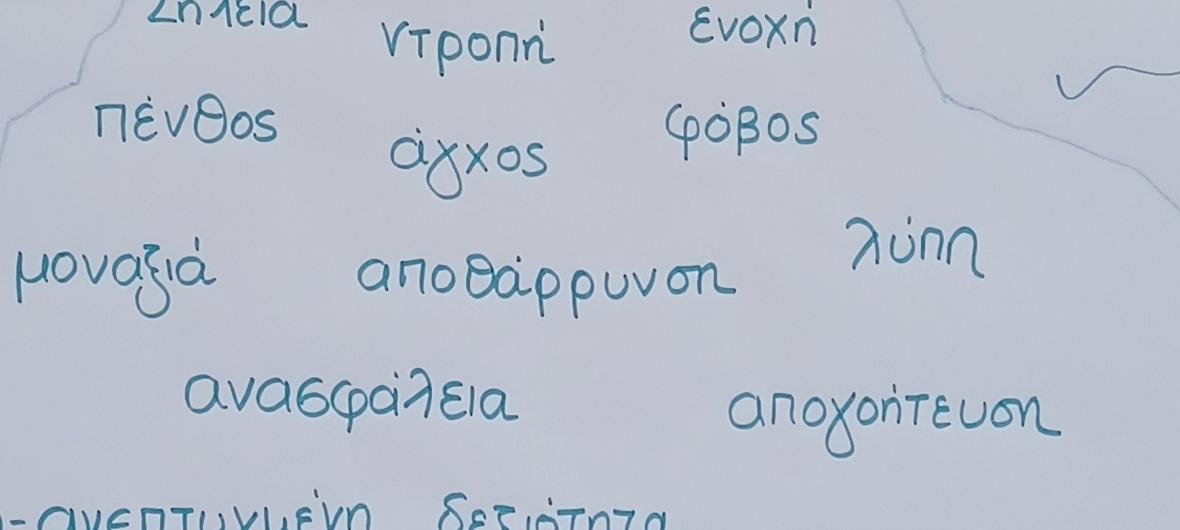 ζήλεια ντροπή ενοχή
πένθος άγχος φόβος
μοναξιά αποθάρρυνση λύπη
ανασφάλεια απογοήτευση
-ανεπτυγμένη δεξιότητα